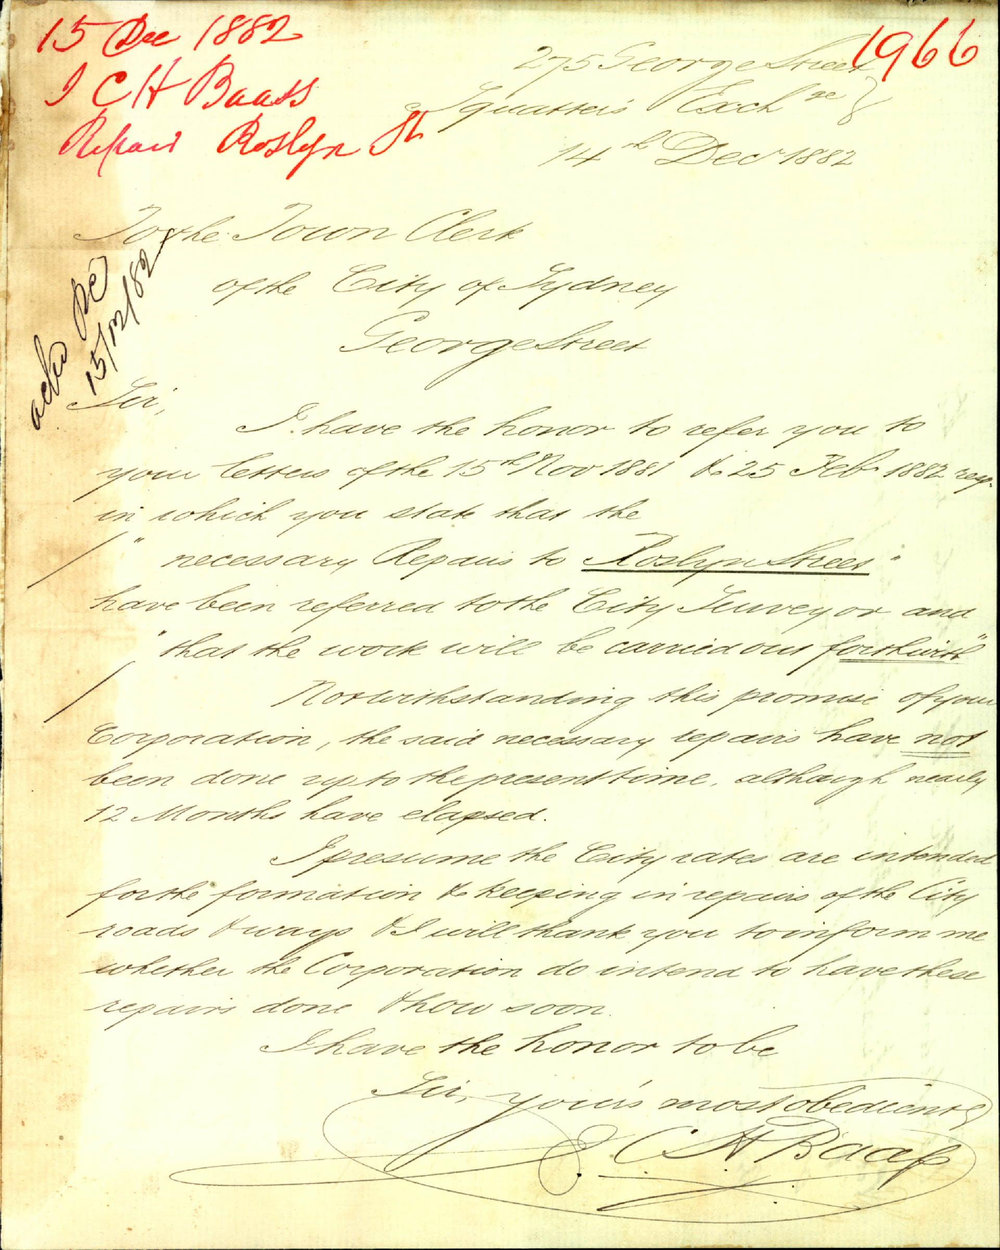 15 Dec 1882
J C H Baass
Repair Roslyn St
1966
275 George Street
Squatter's Exch ge
14th Decr 1882
To the Town Clerk
of the City of Sydney
George Street
ackd
15/12/82
Sir,
I have the honor to refer you to
your letters of the 15th Nov 1881 & 25 Feby 1882 resp.
in which you state that the
" necessary Repairs to Roslyn Street "
have been referred to the City Surveyor and
"that the work will be carried out forthwith"
Notwithstanding this promise of your
Corporation, the said necessary repairs have not
been done up to the present time, although nearly
12 Months have elapsed.
I presume the City rates are intended
for the formation & keeping in repairs of the City
roads & ways & I will thank you to inform me
whether the Corporation do intend to have these
repairs done & how soon.
I have the honor to be
Sir, your's most obedient
J. C. H Baass